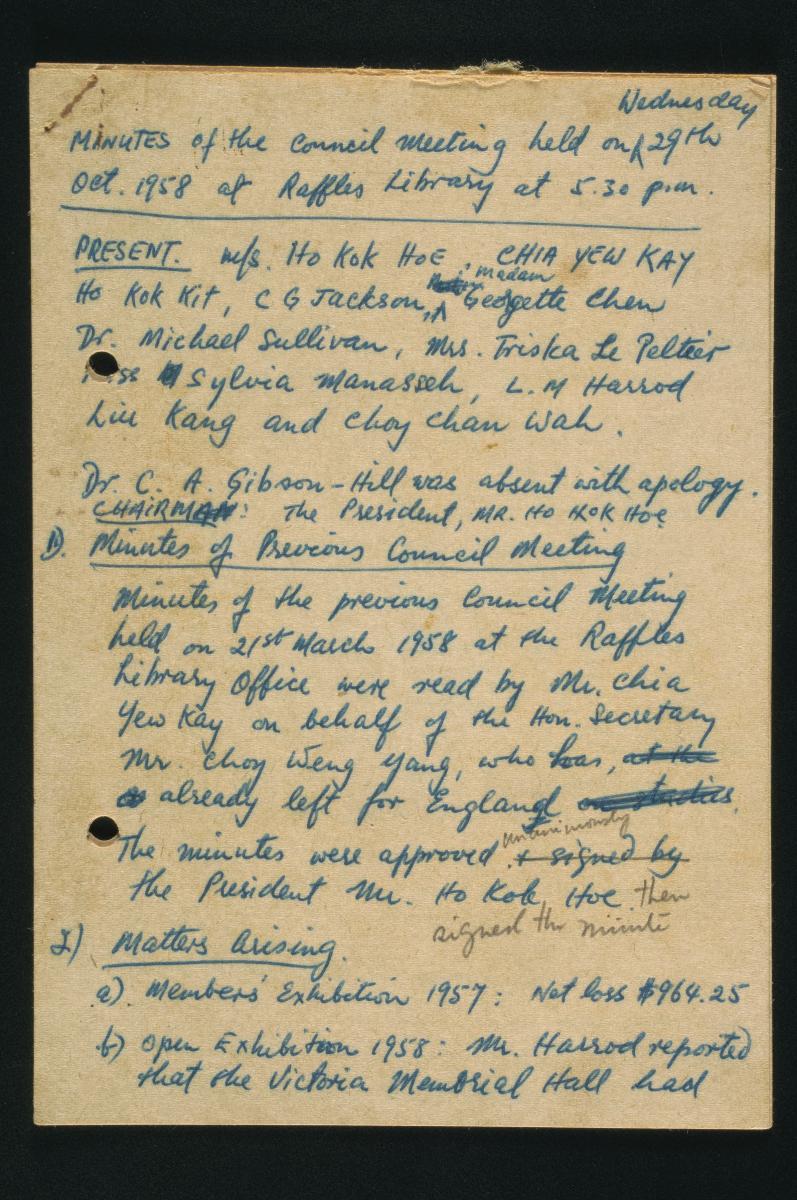 Wednesday
MINUTES of the Council Meeting held on 29th
Oct. 1958 at Raffles Library at 5.30 p.m.
PRESENT. M/s. Ho Kok HoE, CHIA YEW KAY
madam
Ho Kok Kit, C G Jackson, Georgette Chen
Dr. Michael Sullivan, Mrs. Triska Le Peltier
Miss Sylvia Manasseh, L.M Harrod
Liu Kang and Choy Chan Wah.
Dr. C. A. Gibson-Hill was absent with apology.
CHAIRMAN: The President, MR. Ho KoK Hoe
1). Minutes of Previous Council Meeting
Minutes of the previous Council Meeting
held on 21st March 1958 at the Raffles
Library Office were read by Mr. Chia
Yew Kay on behalf of the Hon. Secretary
Mr. Choy Weng Yang, who has, at the
already left for England on studies.
unanimously
The minutes were approved & signed by
the President Mr. Ho Kok Hoe then
signed the minute
2) Matters Arising.
a) Members' Exhibition 1957: Net loss $964.25
b) Open Exhibition 1958: Mr. Harrod reported
that the Victoria Memorial Hall had